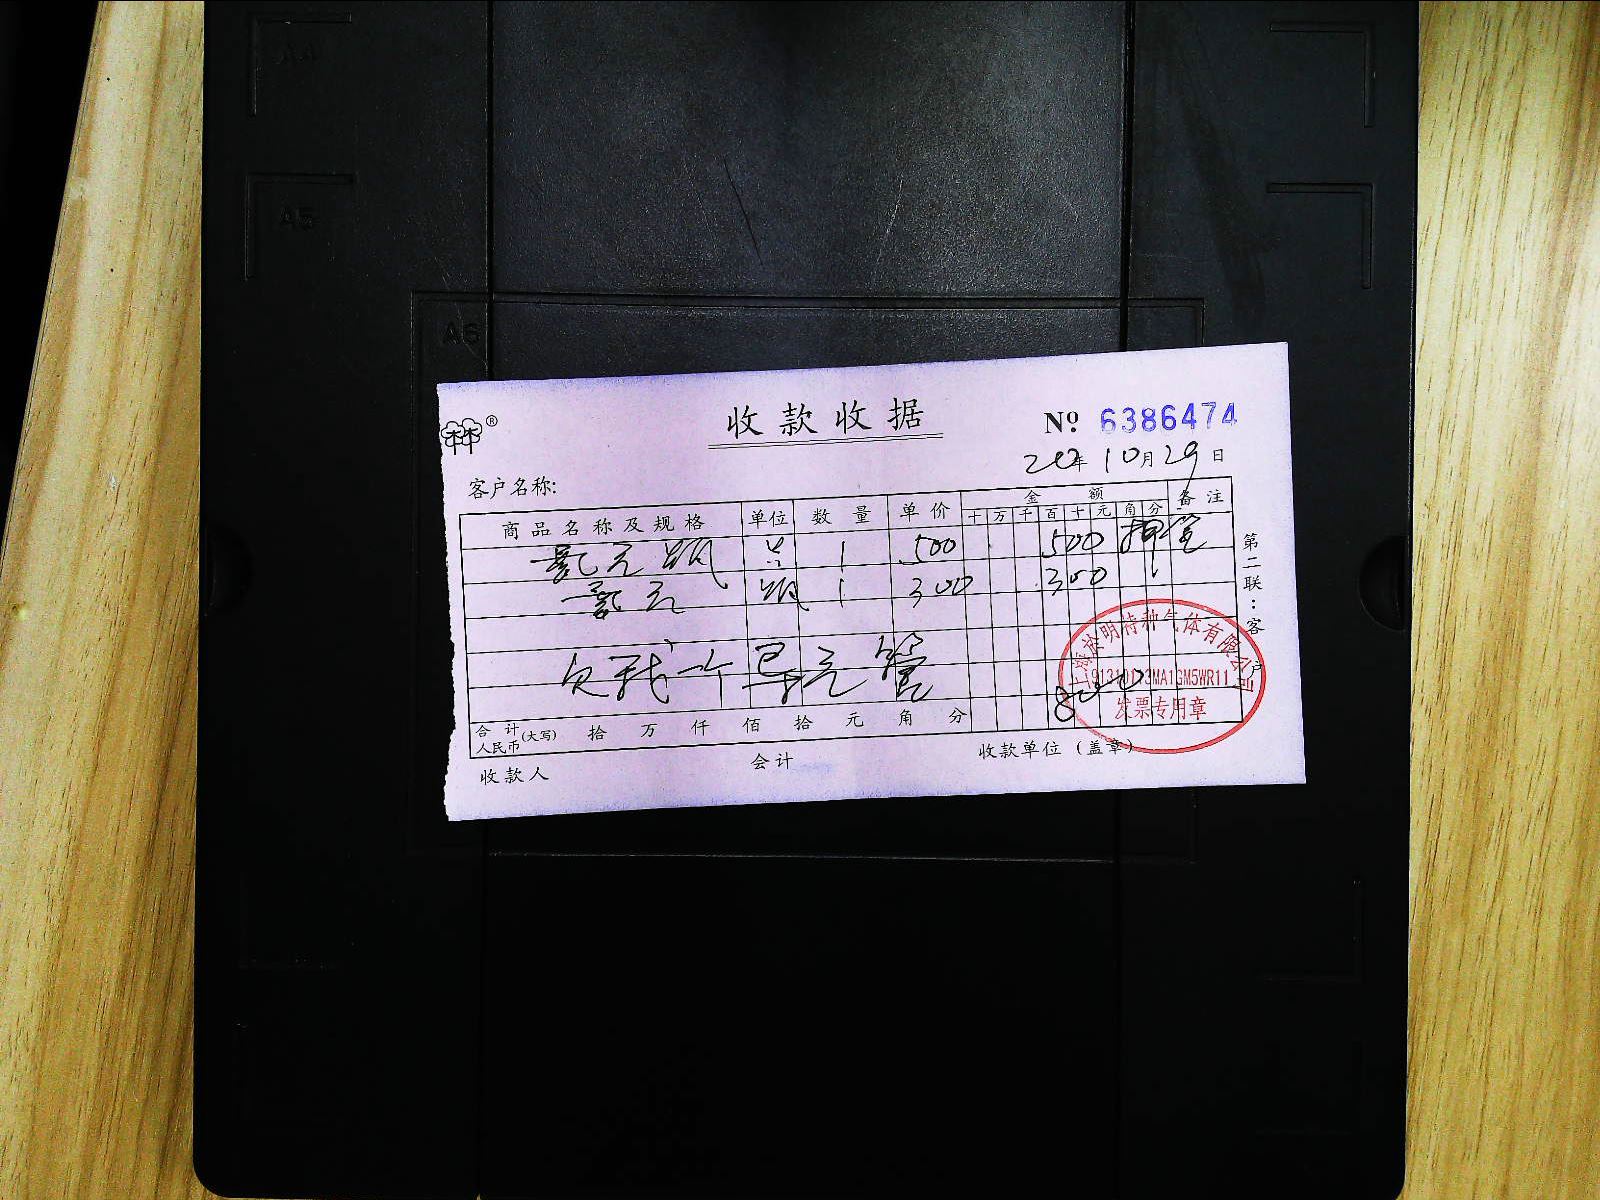 A4
A5
A6
林®
收款收据
No 6386474
2020年10月29日
客户名称:
商品名称及规格 单位 数量 单价 金额 备注
十 万 千 百 十 元 角 分
氦气瓶 只 1 500 500 押金
氦气 瓶 1 300 300
欠我一个导气管
800
合计人民币(大写) 拾 万 仟 佰 拾 元 角 分
收款人 会计 收款单位(盖章)
第二联:客户
明特种气体有限公司
MA1GM5WR11
发票专用章